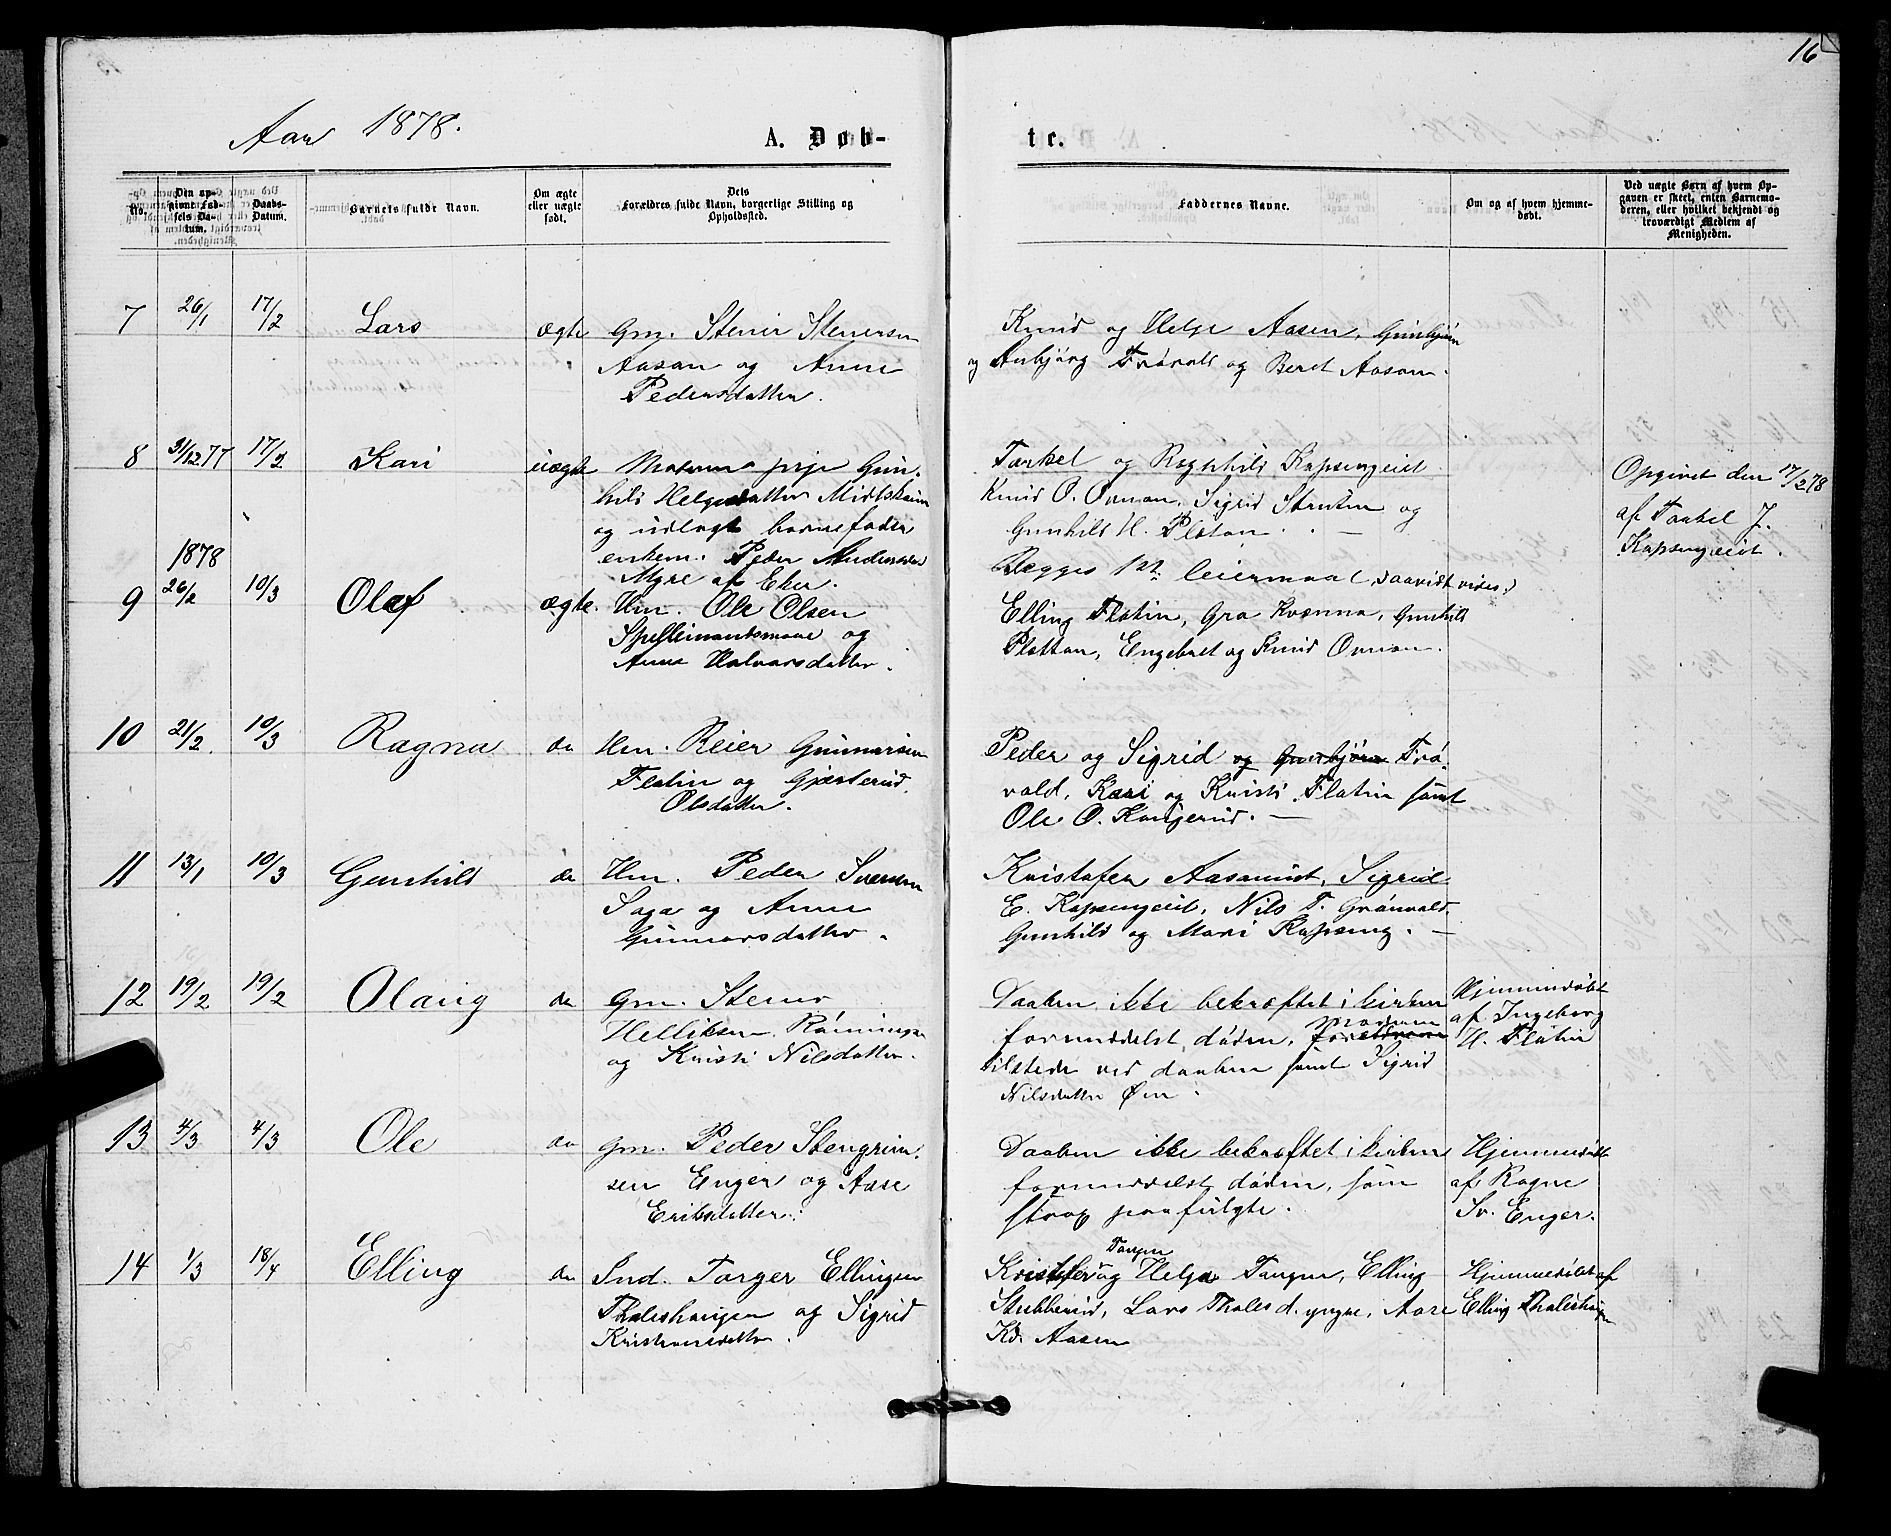 16
Aar 1878.
A. Døb-
te.
No.
Den op-
givne Fød-
sels Da-
tum.
Daabs-
Datum.
Barnets fulde Navn.
Om ægte
eller uægte
født.
Dets
Forældres fulde Navn, borgerlige Stilling og
Opholdssted.
Faddernes Navne.
Om og af hvem hjemme-
døbt.
Ved uægte Børn af hvem Op-
gaven er skeet, enten Barnemo-
deren, eller hvilket bekjendt og
troværdigt Medlem af
Menigheden.
7 26/1 17/2 Lars ægte Gm. Stener Stenersen
Aasan og Anne
Pedersdatter.
Knud og Helge Aasen, Gunbjørn
og Anbjørg Trøvald og Beret Aasan.
8 31/12 77 17/2 Kari uægte pige Gun-
hild Helgesdatter
og udlagt barnefader
enkem. Peder Andersen
Myre af Eker.
Torkel og Ragnhild Kapsengeiet
Knud O. Ovnan, Sigrid og
Gunhild H. Pletan. —
Begges 1ste leiermaal saavidt vides.
Opgivet den 17/2 78
af Torkel J.
Kapsengeiet.
1878
9 26/2 10/3 Olaf ægte. Hm. Ole Olsen
Spellemantsmoae og
Anne Halvorsdatter.
Elling Flatin, Gro Kvænna, Gunhild
Plettan, Engebret og Knud Ovnan.
10 21/2 10/3 Ragna do Hm. Reier Gunnarsen
Flatin og Gjæsterud
Olsdatter.
Peder og Sigrid og Gunbjørn Trø-
vald, Kari og Kristi Flatin samt
Ole O. Kongerud. —
11 13/1 10/3 Gunhild do Hm. Peder Svensen
Saga og Anne
Gunnarsdatter.
Kristofer Aasamoet, Sigrid
E. Kapsengeiet, Nils T. Grønvold,
Gunhild og Mari Kapseng. —
12 19/2 19/2 Olaug do Gm. Stener
Helliksen Rønningen
og Kristi Nilsdatter.
Daaben ikke bekræftet i kirken
formedelst døden, forældrene moderen
tilstede ved daaben samt Sigrid
Nilsdatter Øen.
Hjemmedøbt
af Ingeborg
H. Flatin
13 4/3 4/3 Ole do Gm. Peder Stengrim-
sen Enger og Aase
Eriksdatter.
Daaben ikke bekræftet i kirken
formedelst døden, som
strax paafulgte.
Hjemmedøbt
af Ragne
Sv. Enger.
14 1/3 18/4 Elling do Ind. Torger Ellingsen
Thaleshaugen og Sigrid
Kristiansdatter.
Kristofer Tangen og Helge Tangen, Elling
Stubberud, Lars Thalesh. yngre, Aase
Kd. Aasen
Hjemmedøbt af
Elling Thaleshaugen